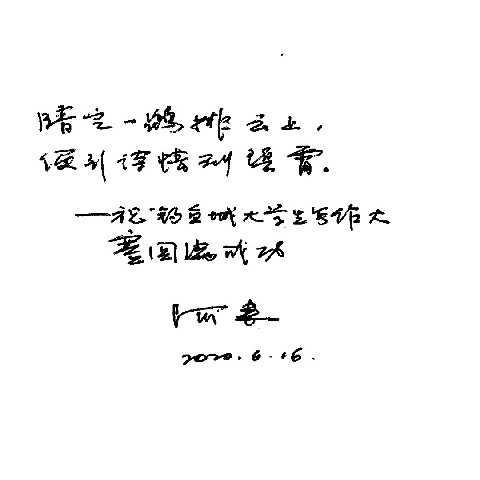 晴空一鹤排云上，
便引诗情到碧霄。
——祝“钓鱼城大学生写作大
赛圆满成功
阿来
2020.6.16.